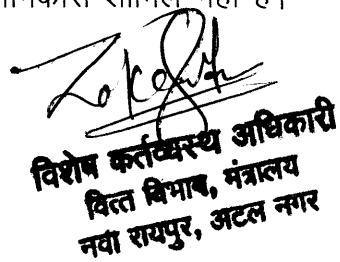 शामिल नहीं है।
विशेष कर्तव्यस्थ अधिकारी
वित्त विभाग, मंत्रालय
नवा रायपुर, अटल नगर